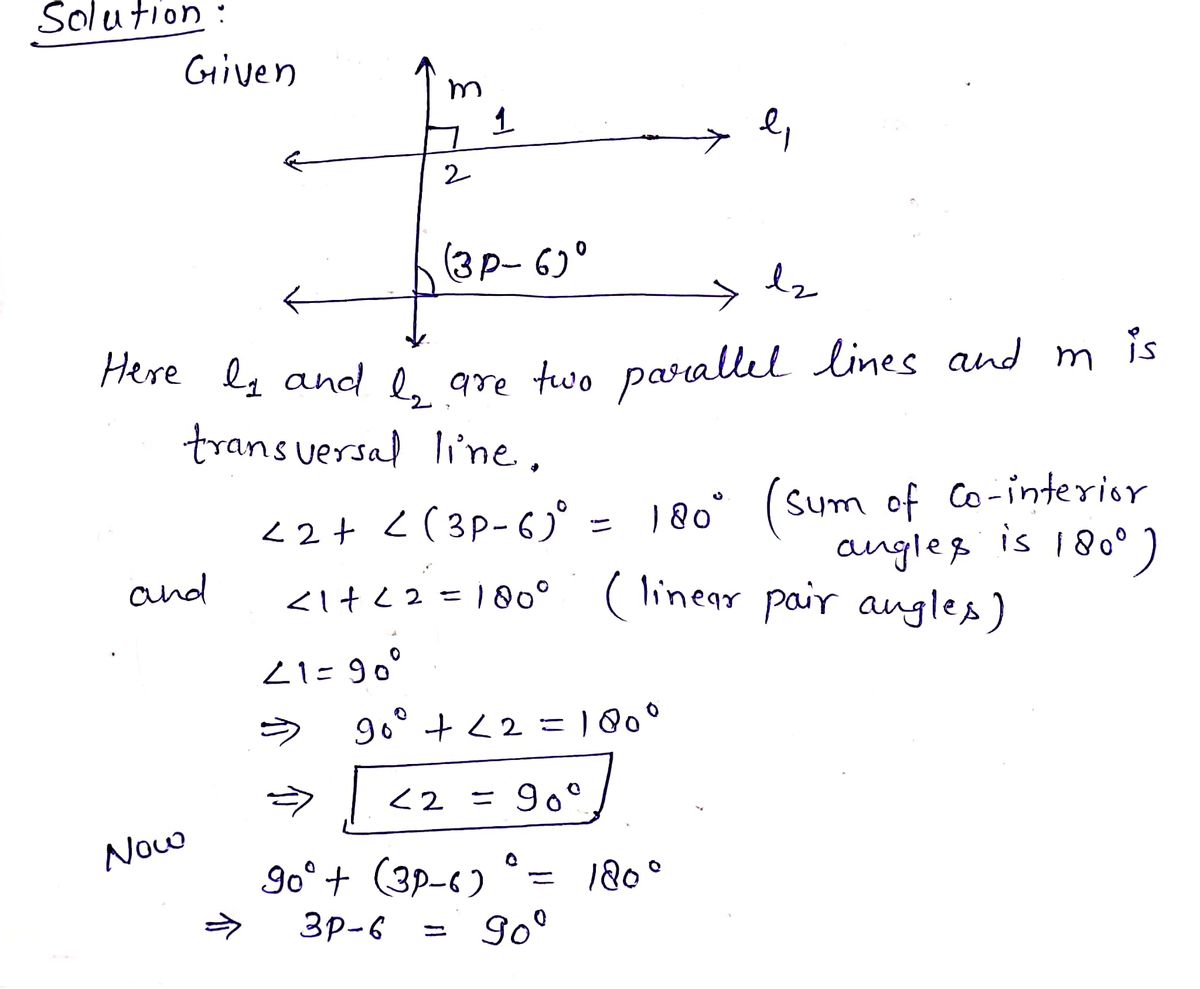 Solution :
Given
m
1
l₁
2
(3P-6)°
l₂
Here l₁ and l₂ are two parallel lines and m is
transversal line.
<2 + <(3P-6)° = 180° (Sum of Co-interior
angles is 180°)
and <1 + <2 = 180° (linear pair angles)
∠1 = 90°
⇒ 90° + <2 = 180°
⇒ <2 = 90°
Now
90° + (3P-6)° = 180°
⇒ 3P-6 = 90°